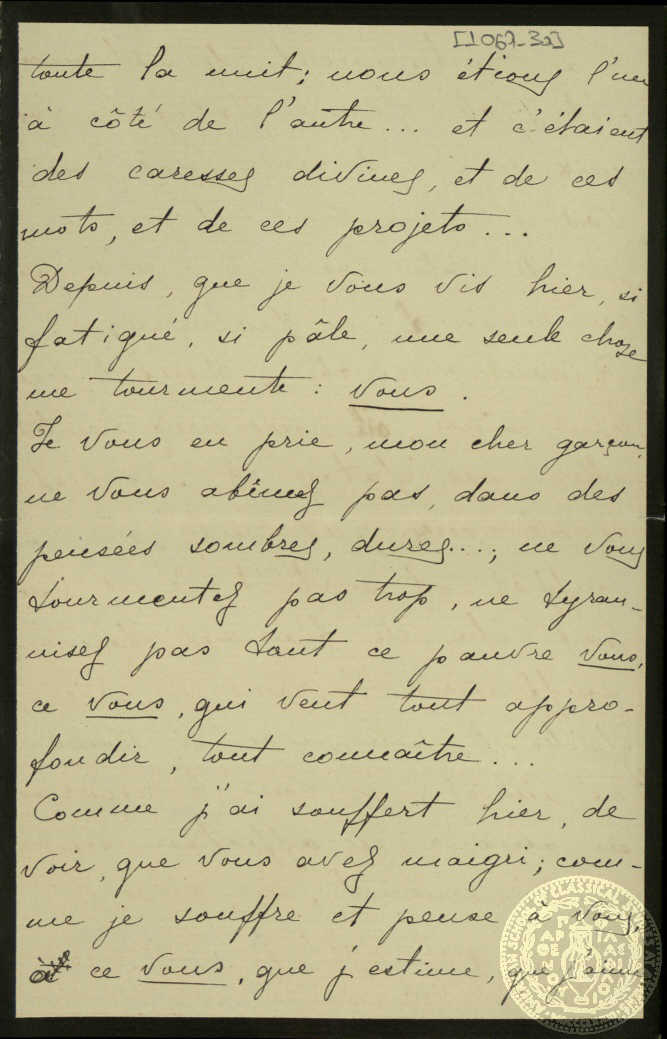 [1067-3a]
toute la nuit; nous étions l'un
à côté de l'autre... et c'étaient
des caresses divines, et de ces
mots, et de ces projets...
Depuis, que je vous vis hier, si
fatigué, si pâle, une seule chose
me tourmente: vous.
Je vous en prie, mon cher garçon,
ne vous abîmez pas, dans des
pensées sombres, dures...; ne vous
tourmentez pas trop, ne tyran-
nisez pas tant ce pauvre vous,
ce vous, qui veut tout appro-
fondir, tout connaître...
Comme j'ai souffert hier, de
voir, que vous avez maigri; com-
me je souffre et pense à vous,
à ce vous, que j'estime, que j'aime